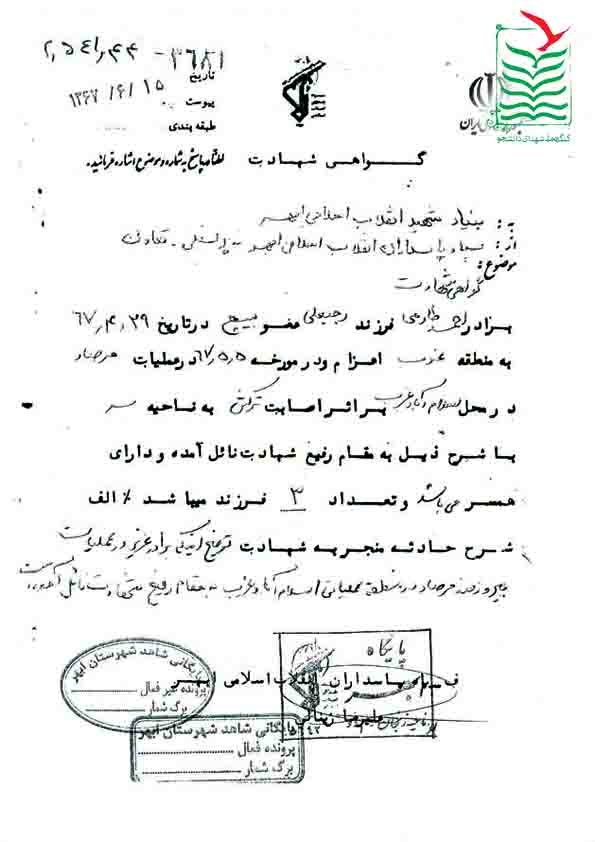 ۲٫۵۴۱٫۴۴ - ۳۶۸۱
تاریخ ۱۳۶۷/۶/۱۵
پیوست
طبقه بندی
ایران
کنگره ملی شهدای دانشجو
گواهی شهادت
لطفا در پاسخ به شماره و موضوع اشاره فرمائید.
به : بنیاد شهید انقلاب اسلامی ابهر
از : سپاه پاسداران انقلاب اسلامی ابهر - پرسنلی - تعاون
موضوع :
گواهی شهادت
برادر احمد فرزند رجبعلی عضو بسیج در تاریخ ۶۷٫۴٫۲۹
به منطقه غرب اعزام و در مورخه ۶۷٫۵٫۵ در عملیات مرصاد
در محل اسلام آباد غرب بر اثر اصابت ترکش به ناحیه سر
با شرح ذیل به مقام رفیع شهادت نائل آمده و دارای
همسر می باشد و تعداد ۳ فرزند میباشد الف
شرح حادثه منجر به شهادت توضیح اینکه برادر عزیز در عملیات
پیروزمند مرصاد در منطقه عملیاتی اسلام آباد غرب به مقام رفیع شهادت نائل آمده است
پایگاه
سپاه پاسداران انقلاب اسلامی ابهر
علیرضا
بایگانی شاهد شهرستان ابهر
پرونده غیر فعال
برگ شمار
بایگانی شاهد شهرستان ابهر
پرونده فعال
برگ شمار